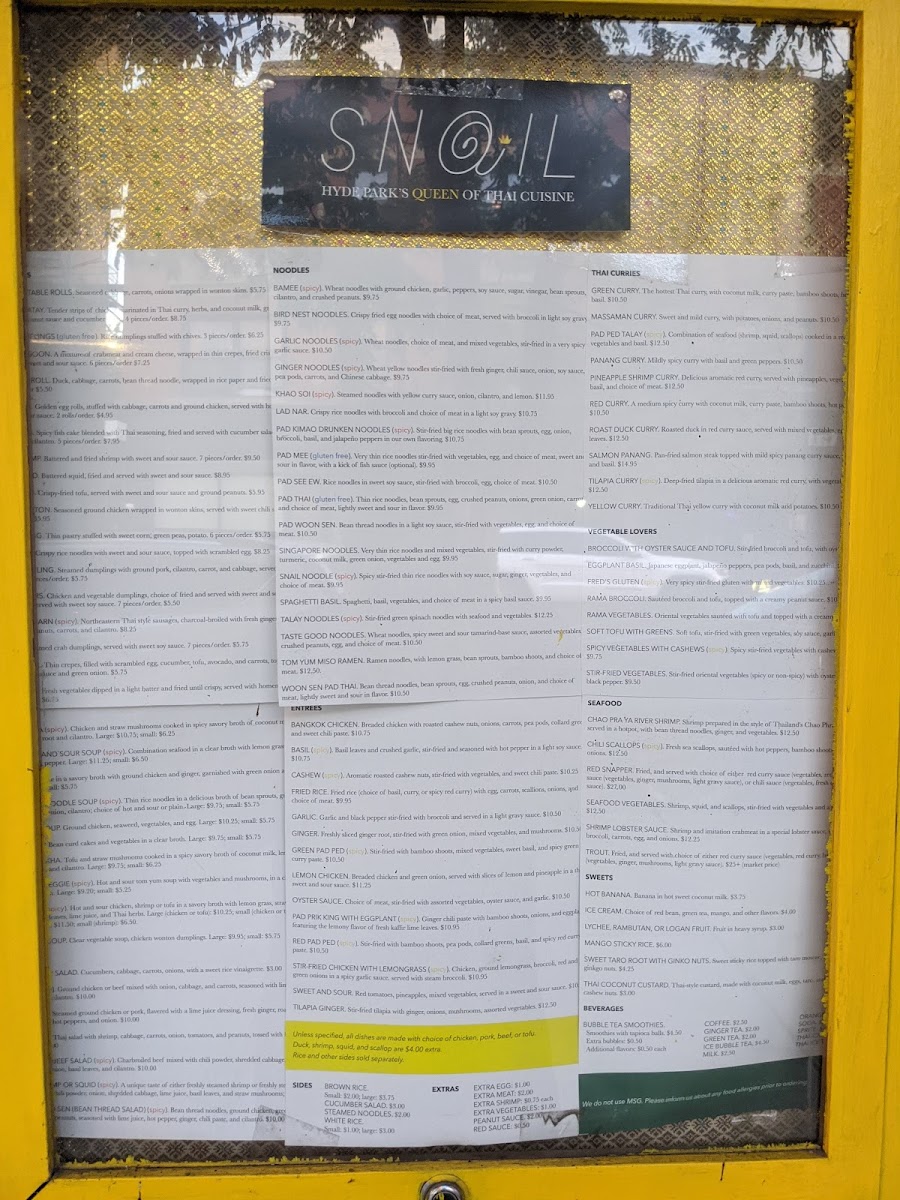 SNAIL
HYDE PARK'S QUEEN OF THAI CUISINE
S
TABLE ROLLS. Seasoned carrots, onions wrapped in wonton skins. $5.75
Tender strips of marinated in Thai curry, herbs, and coconut milk,
sauce and cucumber pieces/order. $8.75
(gluten free). dumplings stuffed with chives. 5 pieces/order. $6.25
A mixture of crabmeat and cream cheese, wrapped in thin crepes, fried
and sour sauce. 6 pieces/order $7.25
ROLL. Duck, cabbage, carrots, bean thread noodle, wrapped in rice paper and fried
$5.50
Golden egg rolls, stuffed with cabbage, carrots and ground chicken, served with
sauce. 2 rolls/order. $4.95
Spicy fish cake blended with Thai seasoning, fried and served with cucumber
cilantro. 5 pieces/order. $7.95
Battered and fried shrimp with sweet and sour sauce. 7 pieces/order. $9.50
Battered squid, fried and served with sweet and sour sauce. $8.95
Crispy-fried tofu, served with sweet and sour sauce and ground peanuts. $5.95
TON. Seasoned ground chicken wrapped in wonton skins, served with sweet chili
$5.95
Thin pastry stuffed with sweet corn, green peas, potato. 6 pieces/order. $5.75
Crispy rice noodles with sweet and sour sauce, topped with scrambled egg. $8.25
LING. Steamed dumplings with ground pork, cilantro, carrot, and cabbage,
pieces/order. $5.75
RS. Chicken and vegetable dumplings, choice of fried and served with sweet and
served with sweet soy sauce. 7 pieces/order. $5.50
ARN (spicy). Northeastern Thai style sausages, charcoal-broiled with fresh ginger
peanuts, carrots, and cilantro. $8.25
crab dumplings, served with sweet soy sauce. 7 pieces/order. $5.75
Thin crepes, filled with scrambled egg, cucumber, tofu, avocado, and carrots,
sauce and green onion. $5.75
Fresh vegetables dipped in a light batter and fried until crispy, served with
$6.75
(spicy). Chicken and straw mushrooms cooked in spicy savory broth of coconut
and cilantro. Large: $10.75; small: $6.25
AND SOUR SOUP (spicy). Combination seafood in a clear broth with lemon grass
pepper. Large: $11.25; small: $6.50
in a savory broth with ground chicken and ginger, garnished with green onion
small: $5.75
NOODLE SOUP (spicy). Thin rice noodles in a delicious broth of bean sprouts,
onion, cilantro; choice of hot and sour or plain. Large: $9.75; small: $5.75
UP. Ground chicken, seaweed, vegetables, and egg. Large: $10.25; small: $5.75
Bean curd cakes and vegetables in a clear broth. Large: $9.75; small: $5.75
HA. Tofu and straw mushrooms cooked in a spicy savory broth of coconut milk,
and cilantro. Large: $9.75; small: $6.25
EGGIE (spicy). Hot and sour tom yum soup with vegetables and mushrooms, in a
Large: $9.20; small: $5.25
(spicy). Hot and sour chicken, shrimp or tofu in a savory broth with lemon grass,
leaves, lime juice, and Thai herbs. Large (chicken or tofu): $10.25; small (chicken or
$11.50; small (shrimp): $6.50.
OUP. Clear vegetable soup, chicken wonton dumplings. Large: $9.95; small: $5.75
SALAD. Cucumbers, cabbage, carrots, onion, with a sweet rice vinaigrette. $3.00
Ground chicken or beef mixed with onion, cabbage, and carrots, seasoned with
cilantro. $10.00
Steamed ground chicken or pork, flavored with a lime juice dressing, fresh ginger,
hot peppers, and onion. $10.00
Thai salad with shrimp, cabbage, carrots, onion, tomatoes, and peanuts, tossed with
BEEF SALAD (spicy). Charbroiled beef mixed with chili powder, shredded cabbage
basil leaves, and cilantro. $10.00
OR SQUID (spicy). A unique taste of either freshly steamed shrimp or freshly
chili powder, onion, shredded cabbage, lime juice, basil leaves, and straw mushrooms
SEN (BEAN THREAD SALAD) (spicy). Bean thread noodles, ground chicken,
peanuts, seasoned with lime juice, hot pepper, ginger, chili paste, and cilantro. $10.00
NOODLES
BAMEE (spicy). Wheat noodles with ground chicken, garlic, peppers, soy sauce, sugar, vinegar, bean sprouts,
cilantro, and crushed peanuts. $9.75
BIRD NEST NOODLES. Crispy fried egg noodles with choice of meat, served with broccoli in light soy gravy
$9.75
GARLIC NOODLES (spicy). Wheat noodles, choice of meat, and mixed vegetables, stir-fried in a very spicy
garlic sauce. $10.50
GINGER NOODLES (spicy). Wheat yellow noodles stir-fried with fresh ginger, chili sauce, onion, soy sauce,
pea pods, carrots, and Chinese cabbage. $9.75
KHAO SOI (spicy). Steamed noodles with yellow curry sauce, onion, cilantro, and lemon. $11.95
LAD NAR. Crispy rice noodles with broccoli and choice of meat in a light soy gravy. $10.75
PAD KIMAO DRUNKEN NOODLES (spicy). Stir-fried big rice noodles with bean sprouts, egg, onion,
broccoli, basil, and jalapeño peppers in our own flavoring. $10.75
PAD MEE (gluten free). Very thin rice noodles stir-fried with vegetables, egg, and choice of meat, sweet and
sour in flavor, with a kick of fish sauce (optional). $9.95
PAD SEE EW. Rice noodles in sweet soy sauce, stir-fried with broccoli, egg, choice of meat. $10.50
PAD THAI (gluten free). Thin rice noodles, bean sprouts, egg, crushed peanuts, onion, green onion, carrot
and choice of meat, lightly sweet and sour in flavor. $9.95
PAD WOON SEN. Bean thread noodles in a light soy sauce, stir-fried with vegetables, egg, and choice of
meat. $10.50
SINGAPORE NOODLES. Very thin rice noodles and mixed vegetables, stir-fried with curry powder,
turmeric, coconut milk, green onion, vegetables and egg. $9.95
SNAIL NOODLE (spicy). Spicy stir-fried thin rice noodles with soy sauce, sugar, ginger, vegetables, and
choice of meat. $9.95
SPAGHETTI BASIL. Spaghetti, basil, vegetables, and choice of meat in a spicy basil sauce. $9.95
TALAY NOODLES (spicy). Stir-fried green spinach noodles with seafood and vegetables. $12.25
TASTE GOOD NOODLES. Wheat noodles, spicy sweet and sour tamarind-base sauce, assorted vegetables
crushed peanuts, onion, and egg, and choice of meat. $10.50
TOM YUM MISO RAMEN. Ramen noodles, with lemon grass, bean sprouts, bamboo shoots, and choice of
meat. $12.50.
WOON SEN PAD THAI. Bean thread noodles, bean sprouts, egg, crushed peanuts, onion, and choice of
meat, lightly sweet and sour in flavor. $10.50
ENTREES
BANGKOK CHICKEN. Breaded chicken with roasted cashew nuts, onions, carrots, pea pods, collard greens
and sweet chili paste. $10.75
BASIL (spicy). Basil leaves and crushed garlic, stir-fried and seasoned with hot pepper in a light soy sauce.
$10.75
CASHEW (spicy). Aromatic roasted cashew nuts, stir-fried with vegetables, and sweet chili paste. $10.25
FRIED RICE. Fried rice (choice of basil, curry, or spicy red curry) with egg, carrots, scallions, onions, and
choice of meat. $9.95
GARLIC. Garlic and black pepper stir-fried with broccoli and served in a light gravy sauce. $10.50
GINGER. Freshly sliced ginger root, stir-fried with green onion, mixed vegetables, and mushrooms. $10.50
GREEN PAD PED (spicy). Stir-fried with bamboo shoots, mixed vegetables, sweet basil, and spicy green
curry paste. $10.50
LEMON CHICKEN. Breaded chicken and green onion, served with slices of lemon and pineapple in a
sweet and sour sauce. $11.25
OYSTER SAUCE. Choice of meat, stir-fried with assorted vegetables, oyster sauce, and garlic. $10.50
PAD PRIK KING WITH EGGPLANT (spicy). Ginger chili paste with bamboo shoots, onions, and eggplant
featuring the lemony flavor of fresh kaffir lime leaves. $10.95
RED PAD PED (spicy). Stir-fried with bamboo shoots, pea pods, collard greens, basil, and spicy red curry
paste. $10.50
STIR-FRIED CHICKEN WITH LEMONGRASS (spicy). Chicken, ground lemongrass, broccoli, red and
green onions in a spicy garlic sauce, served with steam broccoli. $10.95
SWEET AND SOUR. Red tomatoes, pineapples, mixed vegetables, served in a sweet and sour sauce. $10
TILAPIA GINGER. Stir-fried tilapia with ginger, onions, mushrooms, assorted vegetables. $12.50
Unless specified, all dishes are made with choice of chicken, pork, beef, or tofu.
Duck, shrimp, squid, and scallop are $4.00 extra.
Rice and other sides sold separately.
SIDES
BROWN RICE.
Small: $2.00; large: $3.75
CUCUMBER SALAD. $3.00
STEAMED NOODLES. $2.00
WHITE RICE.
Small: $1.00; large: $3.00
EXTRAS
EXTRA EGG: $1.00
EXTRA MEAT: $2.00
EXTRA SHRIMP: $0.75 each
EXTRA VEGETABLES: $1.00
PEANUT SAUCE: $2.00
RED SAUCE: $0.50
THAI CURRIES
GREEN CURRY. The hottest Thai curry, with coconut milk, curry paste, bamboo shoots,
basil. $10.50
MASSAMAN CURRY. Sweet and mild curry, with potatoes, onions, and peanuts. $10.50
PAD PED TALAY (spicy). Combination of seafood (shrimp, squid, scallops) cooked in a
vegetables and basil. $12.50
PANANG CURRY. Mildly spicy curry with basil and green peppers. $10.50
PINEAPPLE SHRIMP CURRY. Delicious aromatic red curry, served with pineapples,
basil, and choice of meat. $12.50
RED CURRY. A medium spicy curry with coconut milk, curry paste, bamboo shoots, hot
$10.50
ROAST DUCK CURRY. Roasted duck in red curry sauce, served with mixed vegetables
leaves. $12.50
SALMON PANANG. Pan-fried salmon steak topped with mild spicy panang curry sauce,
and basil. $14.95
TILAPIA CURRY (spicy). Deep-fried tilapia in a delicious aromatic red curry, with
$12.50
YELLOW CURRY. Traditional Thai yellow curry with coconut milk and potatoes. $10.50
VEGETABLE LOVERS
BROCCOLI WITH OYSTER SAUCE AND TOFU. Stir-fried broccoli and tofu, with
EGGPLANT BASIL. Japanese eggplant, jalapeño peppers, pea pods, basil, and
FRED'S GLUTEN (spicy). Very spicy stir-fried gluten with mixed vegetables $10.25
RAMA BROCCOLI. Sautéed broccoli and tofu, topped with a creamy peanut sauce. $10
RAMA VEGETABLES. Oriental vegetables sautéed with tofu and topped with a creamy
SOFT TOFU WITH GREENS. Soft tofu, stir-fried with green vegetables, soy sauce,
SPICY VEGETABLES WITH CASHEWS (spicy). Spicy stir-fried vegetables with cashew
$9.75
STIR-FRIED VEGETABLES. Stir-fried oriental vegetables (spicy or non-spicy) with oyster
black pepper. $9.50
SEAFOOD
CHAO PRAYA RIVER SHRIMP. Shrimp prepared in the style of Thailand's Chao Phra
served in a hotpot, with bean thread noodles, ginger, and vegetables. $12.50
CHILI SCALLOPS (spicy). Fresh sea scallops, sautéed with hot peppers, bamboo shoots
onions. $12.50
RED SNAPPER. Fried, and served with choice of either red curry sauce (vegetables,
sauce (vegetables, ginger, mushrooms, light gravy sauce), or chili sauce (vegetables,
sauce). $27.00
SEAFOOD VEGETABLES. Shrimp, squid, and scallops, stir-fried with vegetables and
$12.50
SHRIMP LOBSTER SAUCE. Shrimp and imitation crabmeat in a special lobster sauce,
broccoli, carrots, egg, and onions. $12.25
TROUT. Fried, and served with choice of either red curry sauce (vegetables, red curry
(vegetables, ginger, mushrooms, light gravy sauce). $25+ (market price)
SWEETS
HOT BANANA. Banana in hot sweet coconut milk. $3.75
ICE CREAM. Choice of red bean, green tea, mango, and other flavors. $4.00
LYCHEE, RAMBUTAN, OR LOGAN FRUIT. Fruit in heavy syrup. $3.00
MANGO STICKY RICE. $6.00
SWEET TARO ROOT WITH GINKO NUTS. Sweet sticky rice topped with taro
ginkgo nuts. $4.25
THAI COCONUT CUSTARD. Thai-style custard, made with coconut milk, eggs, taro,
cashew nuts. $3.00
BEVERAGES
BUBBLE TEA SMOOTHIES.
Smoothies with tapioca balls. $4.50
Extra bubbles: $0.50
Additional flavors: $0.50 each
COFFEE. $2.50
GINGER TEA. $2.00
GREEN TEA. $2.00
ICE BUBBLE TEA. $4.50
MILK. $2.50
We do not use MSG. Please inform us about any food allergies prior to ordering.